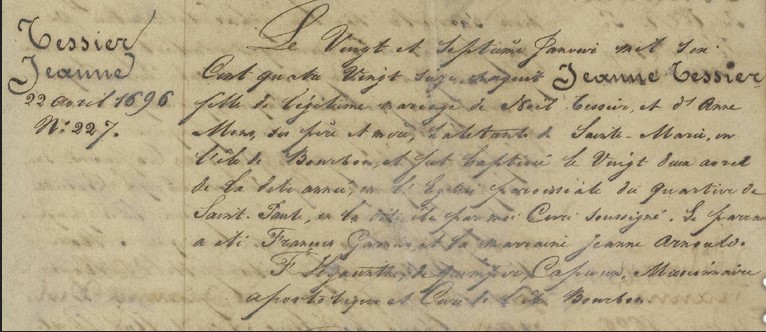 Tessier
Jeanne
22 avril 1696
N° 227.
Le Vingt et Septième Janvier mil six
Cent quatre Vingt seize naquit Jeanne Tessier
fille de légitime mariage de Noël Tessier, et d'Anne
Mous, ses père et mère, habitants de Sainte-Marie, en
l'île de Bourbon, et fut baptisée le Vingt deux avril
de la dite année, en l'Eglise paroissiale du quartier de
Saint-Paul, en la dite île par moi Curé soussigné. Le parrain
a été François Garnier et la marraine Jeanne Arnould.
F. Hyacinthe, de Quimper Capucin, Missionnaire
apostolique et Curé de l'île Bourbon.